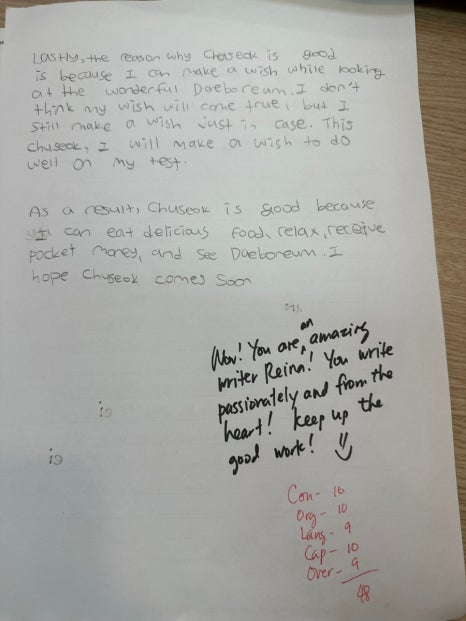 Lastly, the reason why Chuseok is good
is because I can make a wish while looking
at the wonderful Daeboreum. I don't
think my wish will come true, but I
still make a wish just in case. This
Chuseok, I will make a wish to do
well on my test.
As a result, Chuseok is good because
I can eat delicious food, relax, receive
pocket money, and see Daeboreum. I
hope Chuseok comes soon
Wow! You are an amazing
writer Reina! You write
passionately and from the
heart! Keep up the
good work!
Con- 10
Org- 10
Lang- 9
Cap- 10
Over- 9
48